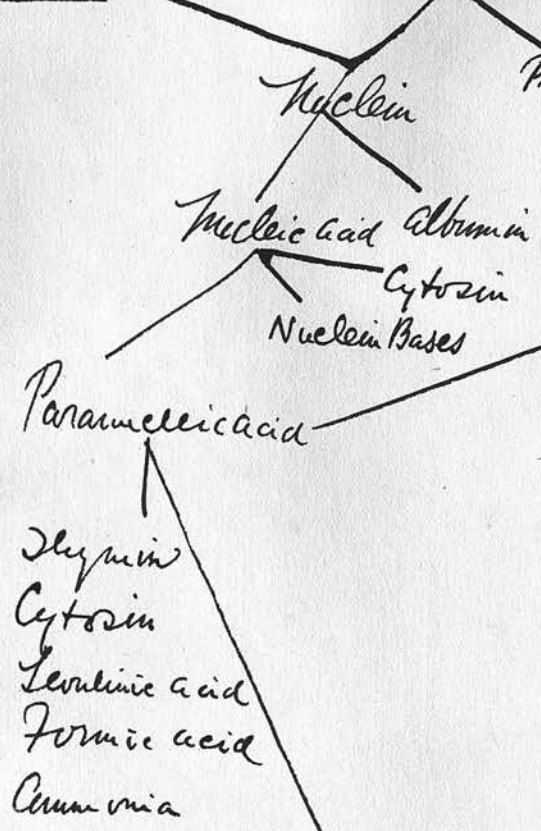 Nuclein
Nucleic acid albumin
Cytosin
Nuclein Bases
Paranucleic acid
Thymin
Cytosin
Levulinic acid
Formic acid
Ammonia